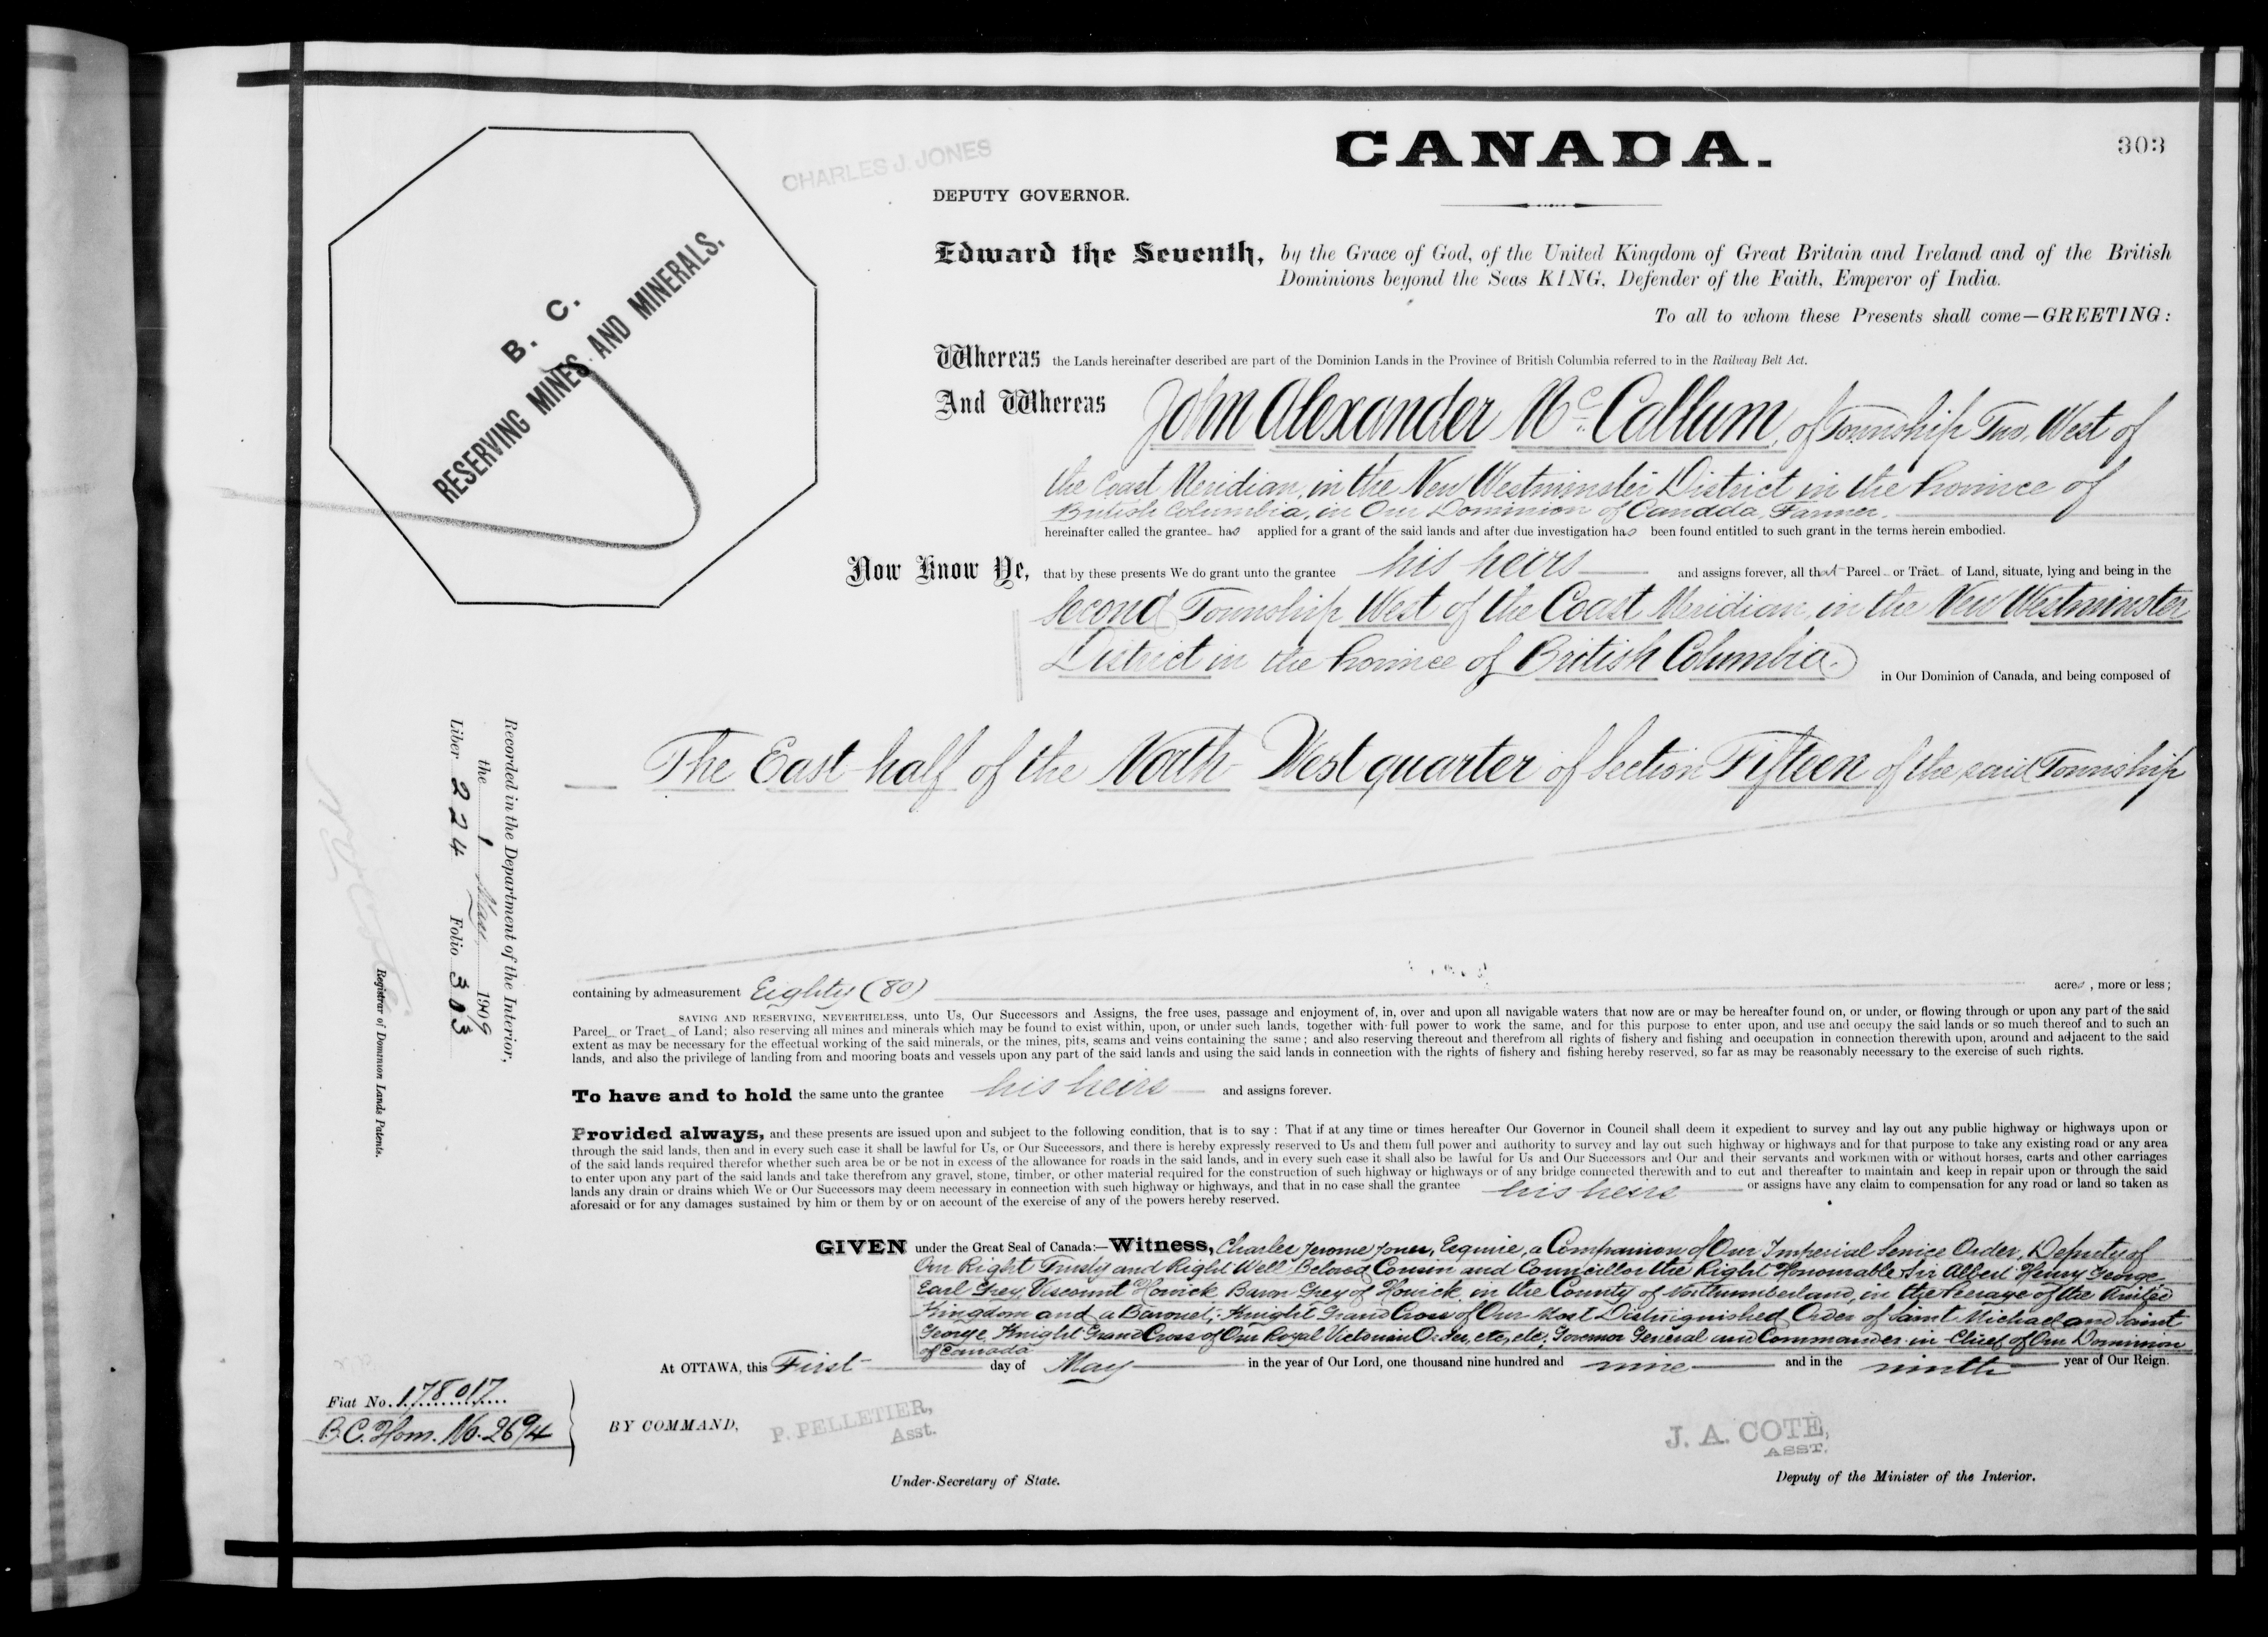 CANADA.
303
CHARLES J. JONES
DEPUTY GOVERNOR.
B. C.
RESERVING MINES AND MINERALS.
Edward the Seventh, by the Grace of God, of the United Kingdom of Great Britain and Ireland and of the British
Dominions beyond the Seas KING, Defender of the Faith, Emperor of India.
To all to whom these Presents shall come—GREETING:
Whereas the Lands hereinafter described are part of the Dominion Lands in the Province of British Columbia referred to in the Railway Belt Act.
And Whereas John Alexander McCallum, of Township Two, West of
the Coast Meridian, in the New Westminster District in the Province of
British Columbia, in Our Dominion of Canada, Farmer.
hereinafter called the grantee has applied for a grant of the said lands and after due investigation has been found entitled to such grant in the terms herein embodied.
Now Know Ye, that by these presents We do grant unto the grantee his heirs and assigns forever, all that Parcel or Tract of Land, situate, lying and being in the
Second Township West of the Coast Meridian, in the New Westminster
District in the Province of British Columbia.
in Our Dominion of Canada, and being composed of
The East half of the North West quarter of Section Fifteen of the said Township
containing by admeasurement Eighty (80) acres, more or less;
SAVING AND RESERVING, NEVERTHELESS, unto Us, Our Successors and Assigns, the free uses, passage and enjoyment of, in, over and upon all navigable waters that now are or may be hereafter found on, or under, or flowing through or upon any part of the said
Parcel or Tract of Land; also reserving all mines and minerals which may be found to exist within, upon, or under such lands, together with full power to work the same, and for this purpose to enter upon, and use and occupy the said lands or so much thereof and to such an
extent as may be necessary for the effectual working of the said minerals, or the mines, pits, seams and veins containing the same; and also reserving thereout and therefrom all rights of fishery and fishing and occupation in connection therewith upon, around and adjacent to the said
lands, and also the privilege of landing from and mooring boats and vessels upon any part of the said lands and using the said lands in connection with the rights of fishery and fishing hereby reserved, so far as may be reasonably necessary to the exercise of such rights.
To have and to hold the same unto the grantee his heirs and assigns forever.
Provided always, and these presents are issued upon and subject to the following condition, that is to say: That if at any time or times hereafter Our Governor in Council shall deem it expedient to survey and lay out any public highway or highways upon or
through the said lands, then and in every such case it shall be lawful for Us, or Our Successors, and there is hereby expressly reserved to Us and them full power and authority to survey and lay out such highway or highways and for that purpose to take any existing road or any area
of the said lands required therefor whether such area be or be not in excess of the allowance for roads in the said lands, and in every such case it shall also be lawful for Us and Our Successors and Our and their servants and workmen with or without horses, carts and other carriages
to enter upon any part of the said lands and take therefrom any gravel, stone, timber, or other material required for the construction of such highway or highways or of any bridge connected therewith and to cut and thereafter to maintain and keep in repair upon or through the said
lands any drain or drains which We or Our Successors may deem necessary in connection with such highway or highways, and that in no case shall the grantee his heirs or assigns have any claim to compensation for any road or land so taken as
aforesaid or for any damages sustained by him or them by or on account of the exercise of any of the powers hereby reserved.
GIVEN under the Great Seal of Canada:—Witness, Charles Jerome Jones, Esquire, a Companion of Our Imperial Service Order, Deputy of
Our Right Trusty and Right Well Beloved Cousin and Councillor the Right Honourable Sir Albert Henry George,
Earl Grey, Viscount Howick, Baron Grey of Howick, in the County of Northumberland, in the Peerage of the United
Kingdom and a Baronet; Knight Grand Cross of Our Most Distinguished Order of Saint Michael and Saint
George, Knight Grand Cross of Our Royal Victorian Order, etc., etc., Governor General and Commander in Chief of Our Dominion
of Canada
At OTTAWA, this First day of May in the year of Our Lord, one thousand nine hundred and nine and in the ninth year of Our Reign.
Fiat No. 178017
B.C. Hom. No. 2694
BY COMMAND,
P. PELLETIER,
Asst.
Under-Secretary of State.
J. A. COTE,
ASST.
Deputy of the Minister of the Interior.
Recorded in the Department of the Interior,
the 1 May 1909
Liber 224 Folio 303
Registrar of Dominion Lands Patents.